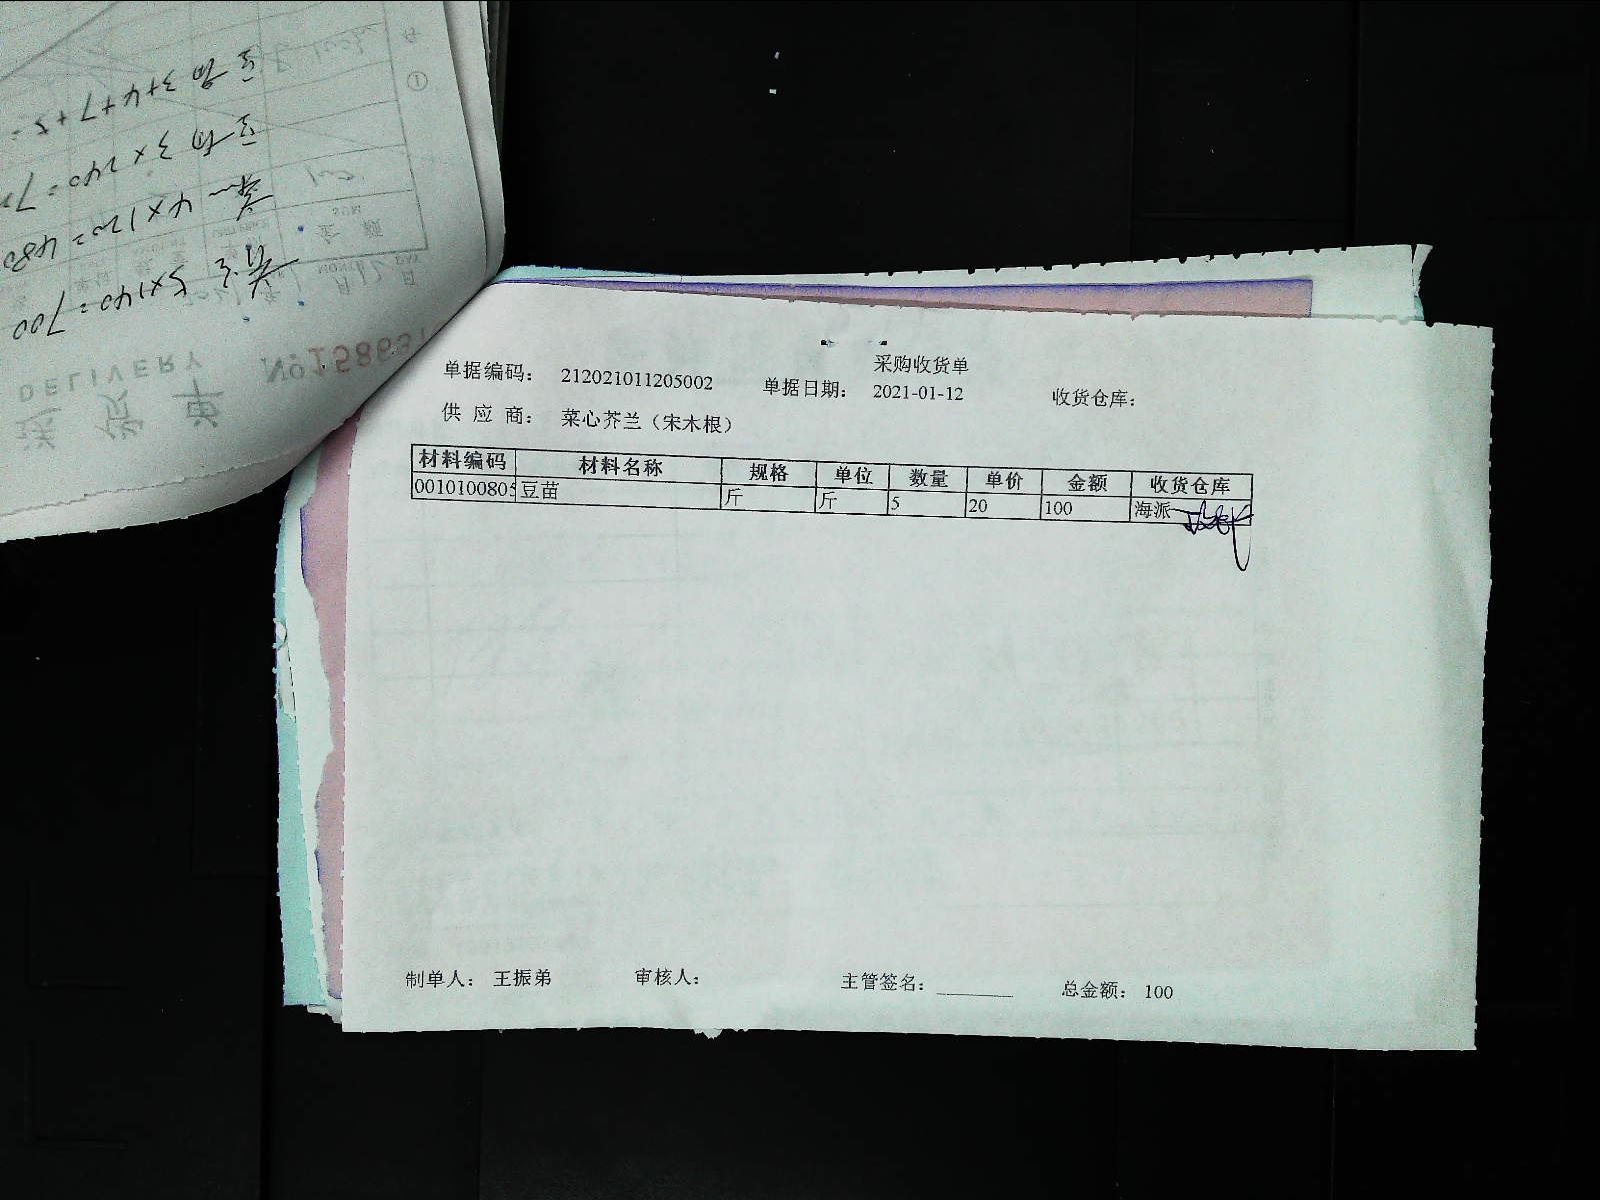 采购收货单
单据编码： 212021011205002 单据日期： 2021-01-12 收货仓库：
供 应 商： 菜心芥兰（宋木根）
材料编码 材料名称 规格 单位 数量 单价 金额 收货仓库
001010080 豆苗 斤 斤 5 20 100 海派
制单人： 王振弟 审核人： 主管签名： 总金额： 100
5×140=700
4×120=480
豆角 3×240=
豆角 3+4+7+
送货单
DELIVERY №158631